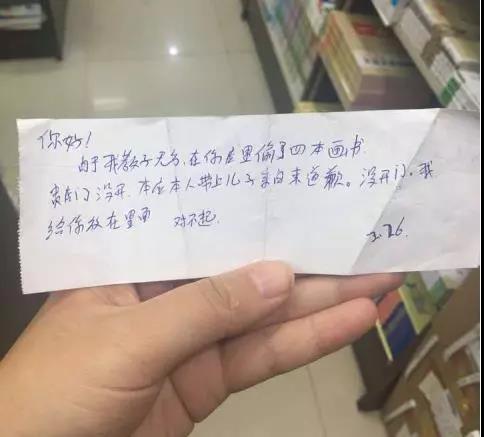 你好！
由于我教子无方，在你店里偷了四本画书
贵店门没开，本应本人带上儿子亲自来道歉。没开门。我
给你放在里面 对不起.
3.26.